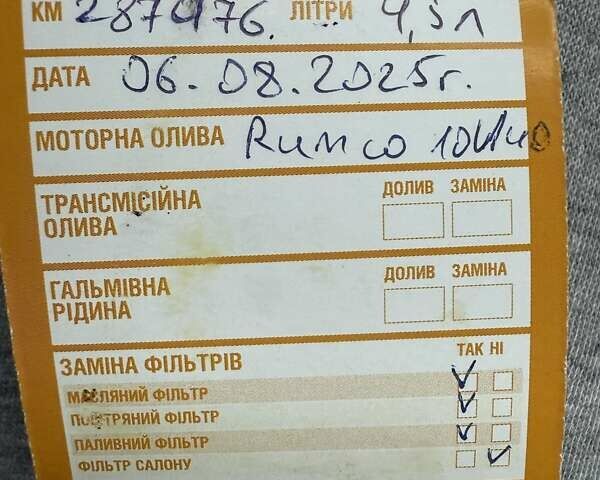 КМ 287476. ЛІТРИ 4,5л
ДАТА 06.08.2025г.
МОТОРНА ОЛИВА 10W40
ТРАНСМІСІЙНА ОЛИВА ДОЛИВ ЗАМІНА
ГАЛЬМІВНА РІДИНА ДОЛИВ ЗАМІНА
ЗАМІНА ФІЛЬТРІВ ТАК НІ
МАСЛЯНИЙ ФІЛЬТР
ПОВІТРЯНИЙ ФІЛЬТР
ПАЛИВНИЙ ФІЛЬТР
ФІЛЬТР САЛОНУ